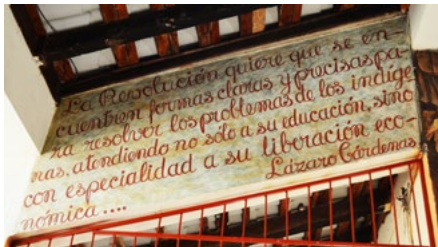 La Revolución quiere que se en-
cuentren formas claras y precisas pa-
ra resolver los problemas de los indíge
nas, atendiendo no sólo a su educación, sino
con especialidad a su liberación eco-
nómica....
Lázaro Cárdenas